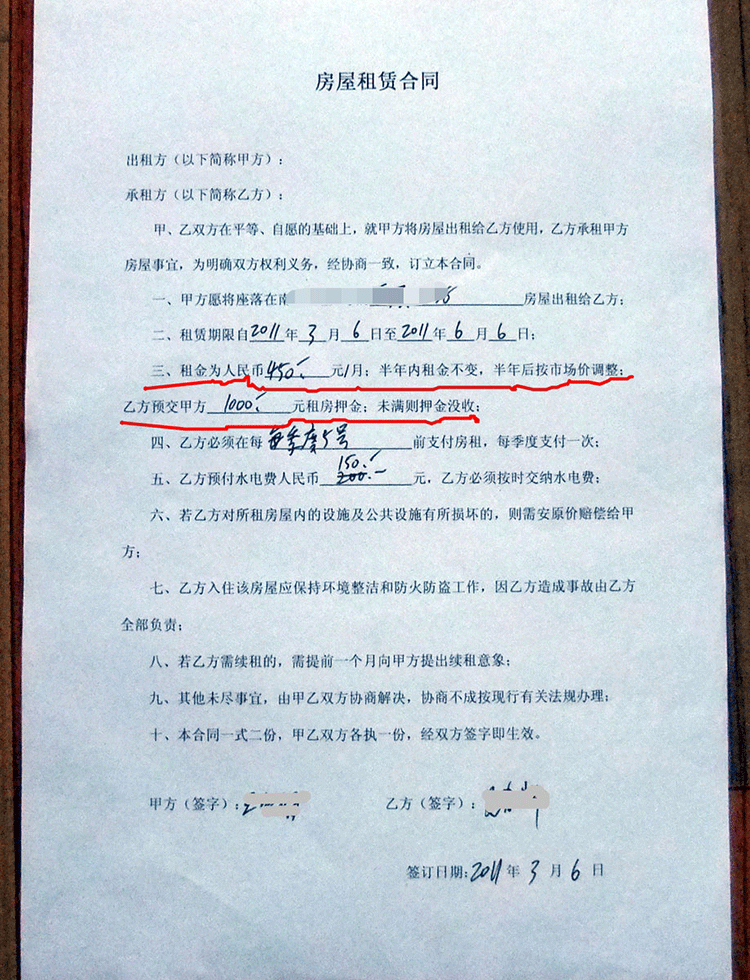 房屋租赁合同
出租方（以下简称甲方）：
承租方（以下简称乙方）：
甲、乙双方在平等、自愿的基础上，就甲方将房屋出租给乙方使用，乙方承租甲方
房屋事宜，为明确双方权利义务，经协商一致，订立本合同。
一、甲方愿将座落在南 房屋出租给乙方；
二、租赁期限自2011年3月6日至2011年6月6日；
三、租金为人民币450.-元/月；半年内租金不变，半年后按市场价调整；
乙方预交甲方1000.-元租房押金；未满则押金没收；
四、乙方必须在每每季度5号前支付房租，每季度支付一次；
五、乙方预付水电费人民币150.-200.-元，乙方必须按时交纳水电费；
六、若乙方对所租房屋内的设施及公共设施有所损坏的，则需安原价赔偿给甲
方；
七、乙方入住该房屋应保持环境整洁和防火防盗工作，因乙方造成事故由乙方
全部负责；
八、若乙方需续租的，需提前一个月向甲方提出续租意象；
九、其他未尽事宜，由甲乙双方协商解决，协商不成按现行有关法规办理；
十、本合同一式二份，甲乙双方各执一份，经双方签字即生效。
甲方（签字）： 乙方（签字）：
签订日期：2011年3月6日